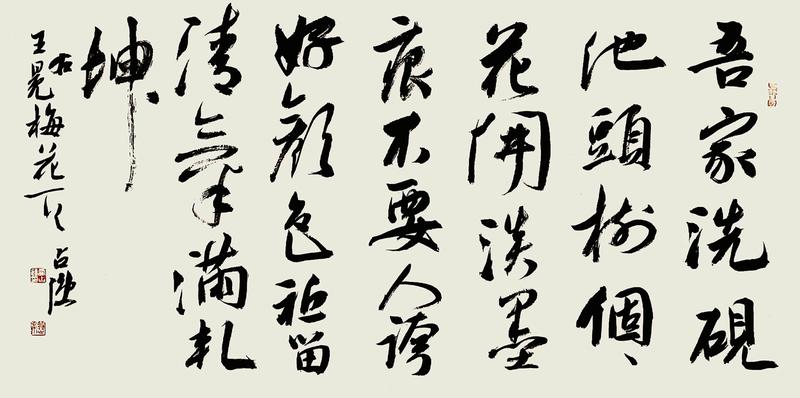 吾家洗硯
池頭樹個、
花開淡墨
痕不要人誇
好顏色祇留
清氣滿乾
坤
右王冕梅花一首